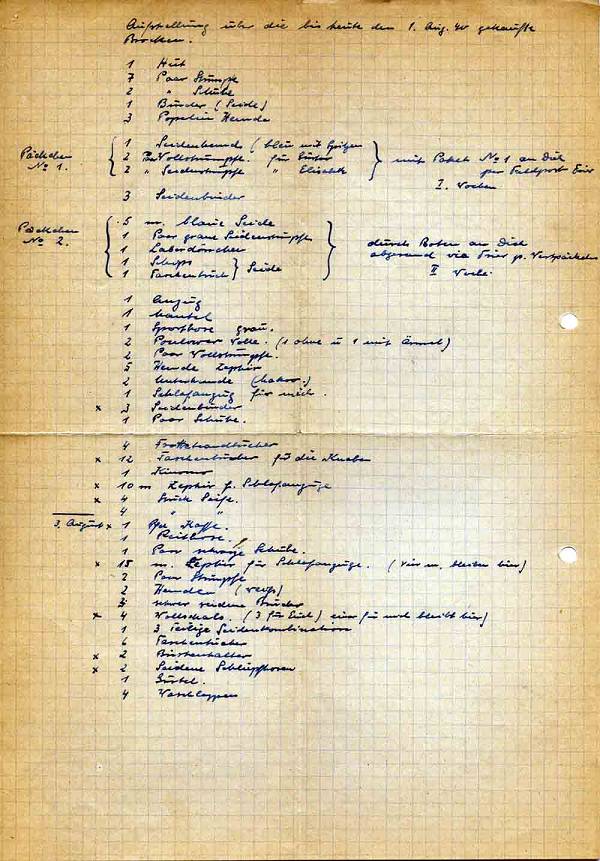 Aufstellung über die bis heute den 1. Aug. 40 gekaufte
Brocken.
1 Hut
7 Paar Strümpfe
2 " Schuhe
1 Binder (Seide)
3 Popelin Hemde
Päckchen No 1.
1 Seidenhemd (bleu mit Spitzen
2 Paar Wollstrümpfe für
2 " Seidenstrümpfe " Elisabeth
mit Paket No 1 an Dich
per Feldpost
I. Wochen
3 Seidenbinder
Päckchen No 2.
5 m. blaue Seide
1 Paar graue Seidenstrümpfe
1
1
1 Taschentuch } Seide
durch Boten an Dich
abgesand via Trier p.
II
1 Anzug
1 Mantel
1 Sporthose grau.
2 Pullower Wolle. (1 ohne u 1 mit Ärmel)
2 Paar Wollstrümpfe.
5 Hemde Zephir
2 Unterhemde
1 Schlafanzug für mich.
x 3 Seidenbinder
1 Paar Schuhe.
4 Frottehandtücher
x 12 Taschentücher für die Knaben
1 Kimono
x 10 m Zephir f. Schlafanzüge
x 4 Stück Seife.
4 " "
3. August x 1 Pfd Kaffe.
1 Reithose.
1 Paar schwarze Schuhe.
x 15 m. Zephir für Schlafanzüge. (vier m. bleiben hier)
2 Paar Strümpfe
2 Hemden (weiß)
3 seidene Binder
x 4 Wollschals. (3 für Euch) einer für mich bleibt hier)
1 3 teilige Seidenkombination
6 Taschentücher
x 2 Büstenhalter
x 2 Seidene Schlüpfhosen
1 Gürtel.
4 Waschlappen